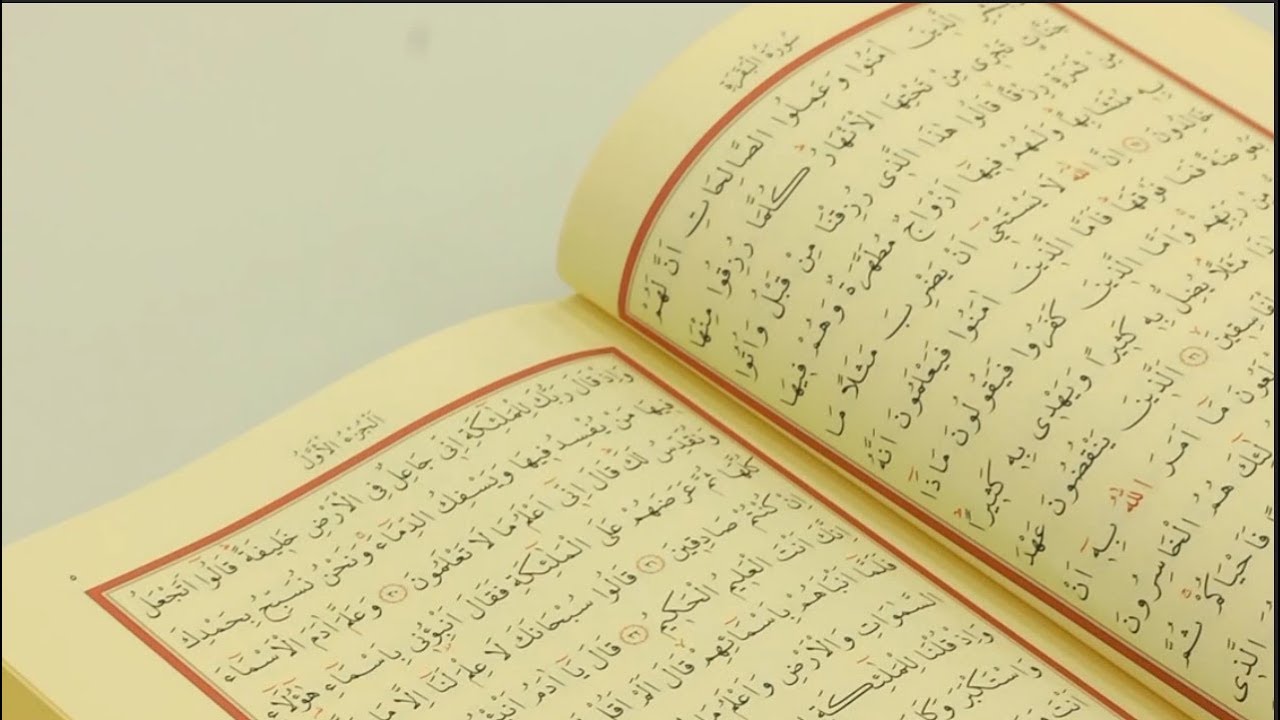 سُورَةُ الْبَقَرَةِ
الَّذِينَ اٰمَنُوا وَعَمِلُوا الصَّالِحَاتِ اَنَّ لَهُمْ
جَنَّاتٍ تَجْرٖى مِنْ تَحْتِهَا الْاَنْهَارُ كُلَّمَا رُزِقُوا مِنْهَا
مِنْ ثَمَرَةٍ رِزْقًا قَالُوا هٰذَا الَّذٖى رُزِقْنَا مِنْ قَبْلُ وَاُتُوا
بِهٖ مُتَشَابِهاً وَلَهُمْ فٖيهَا اَزْوَاجٌ مُطَهَّرَةٌ وَهُمْ فٖيهَا
خَالِدُونَ ﴿٢٥﴾ اِنَّ اللّٰهَ لَا يَسْتَحْيٖٓ اَنْ يَضْرِبَ مَثَلًا مَا
بَعُوضَةً فَمَا فَوْقَهَا فَاَمَّا الَّذٖينَ اٰمَنُوا فَيَعْلَمُونَ اَنَّهُ
مِنْ رَبِّهِمْ وَاَمَّا الَّذٖينَ كَفَرُوا فَيَقُولُونَ مَاذَا
مَثَلًاۘ يُضِلُّ بِهٖ كَثٖيراً وَيَهْدٖى بِهٖ كَثٖيراً
الَّذٖينَ يَنْقُضُونَ عَهْدَ
مَا اَمَرَ اللّٰهُ بِهٖٓ اَنْ
هُمُ الْخَاسِرُونَ
فَاَحْيَاكُمْ ثُمَّ
الَّذٖى
اَلْجُزْءُ الْاَوَّلُ
وَاِذْ قَالَ رَبُّكَ لِلْمَلٰٓئِكَةِ اِنّٖى جَاعِلٌ فِى الْاَرْضِ خَلٖيفَةً قَالُٓوا اَتَجْعَلُ
فٖيهَا مَنْ يُفْسِدُ فٖيهَا وَيَسْفِكُ الدِّمَٓاءَ وَنَحْنُ نُسَبِّحُ بِحَمْدِكَ
وَنُقَدِّسُ لَكَ قَالَ اِنّٖٓى اَعْلَمُ مَا لَا تَعْلَمُونَ ﴿٣٠﴾ وَعَلَّمَ اٰدَمَ الْاَسْمَٓاءَ
كُلَّهَا ثُمَّ عَرَضَهُمْ عَلَى الْمَلٰٓئِكَةِ فَقَالَ اَنْبِؤُنٖى بِاَسْمَٓاءِ هٰٓؤُلَٓاءِ
اِنْ كُنْتُمْ صَادِقٖينَ ﴿٣١﴾ قَالُوا سُبْحَانَكَ لَا عِلْمَ لَنَٓا اِلَّا مَا
اِنَّكَ اَنْتَ الْعَلٖيمُ الْحَكٖيمُ ﴿٣٢﴾ قَالَ يَٓا اٰدَمُ
فَلَمَّٓا اَنْبَاَهُمْ بِاَسْمَٓائِهِمْ قَالَ اَلَمْ اَقُلْ
السَّمٰوَاتِ وَالْاَرْضِ وَاَعْلَمُ
وَاِذْ قُلْنَا لِلْمَلٰٓئِكَةِ
وَاسْتَكْبَرَ وَكَانَ